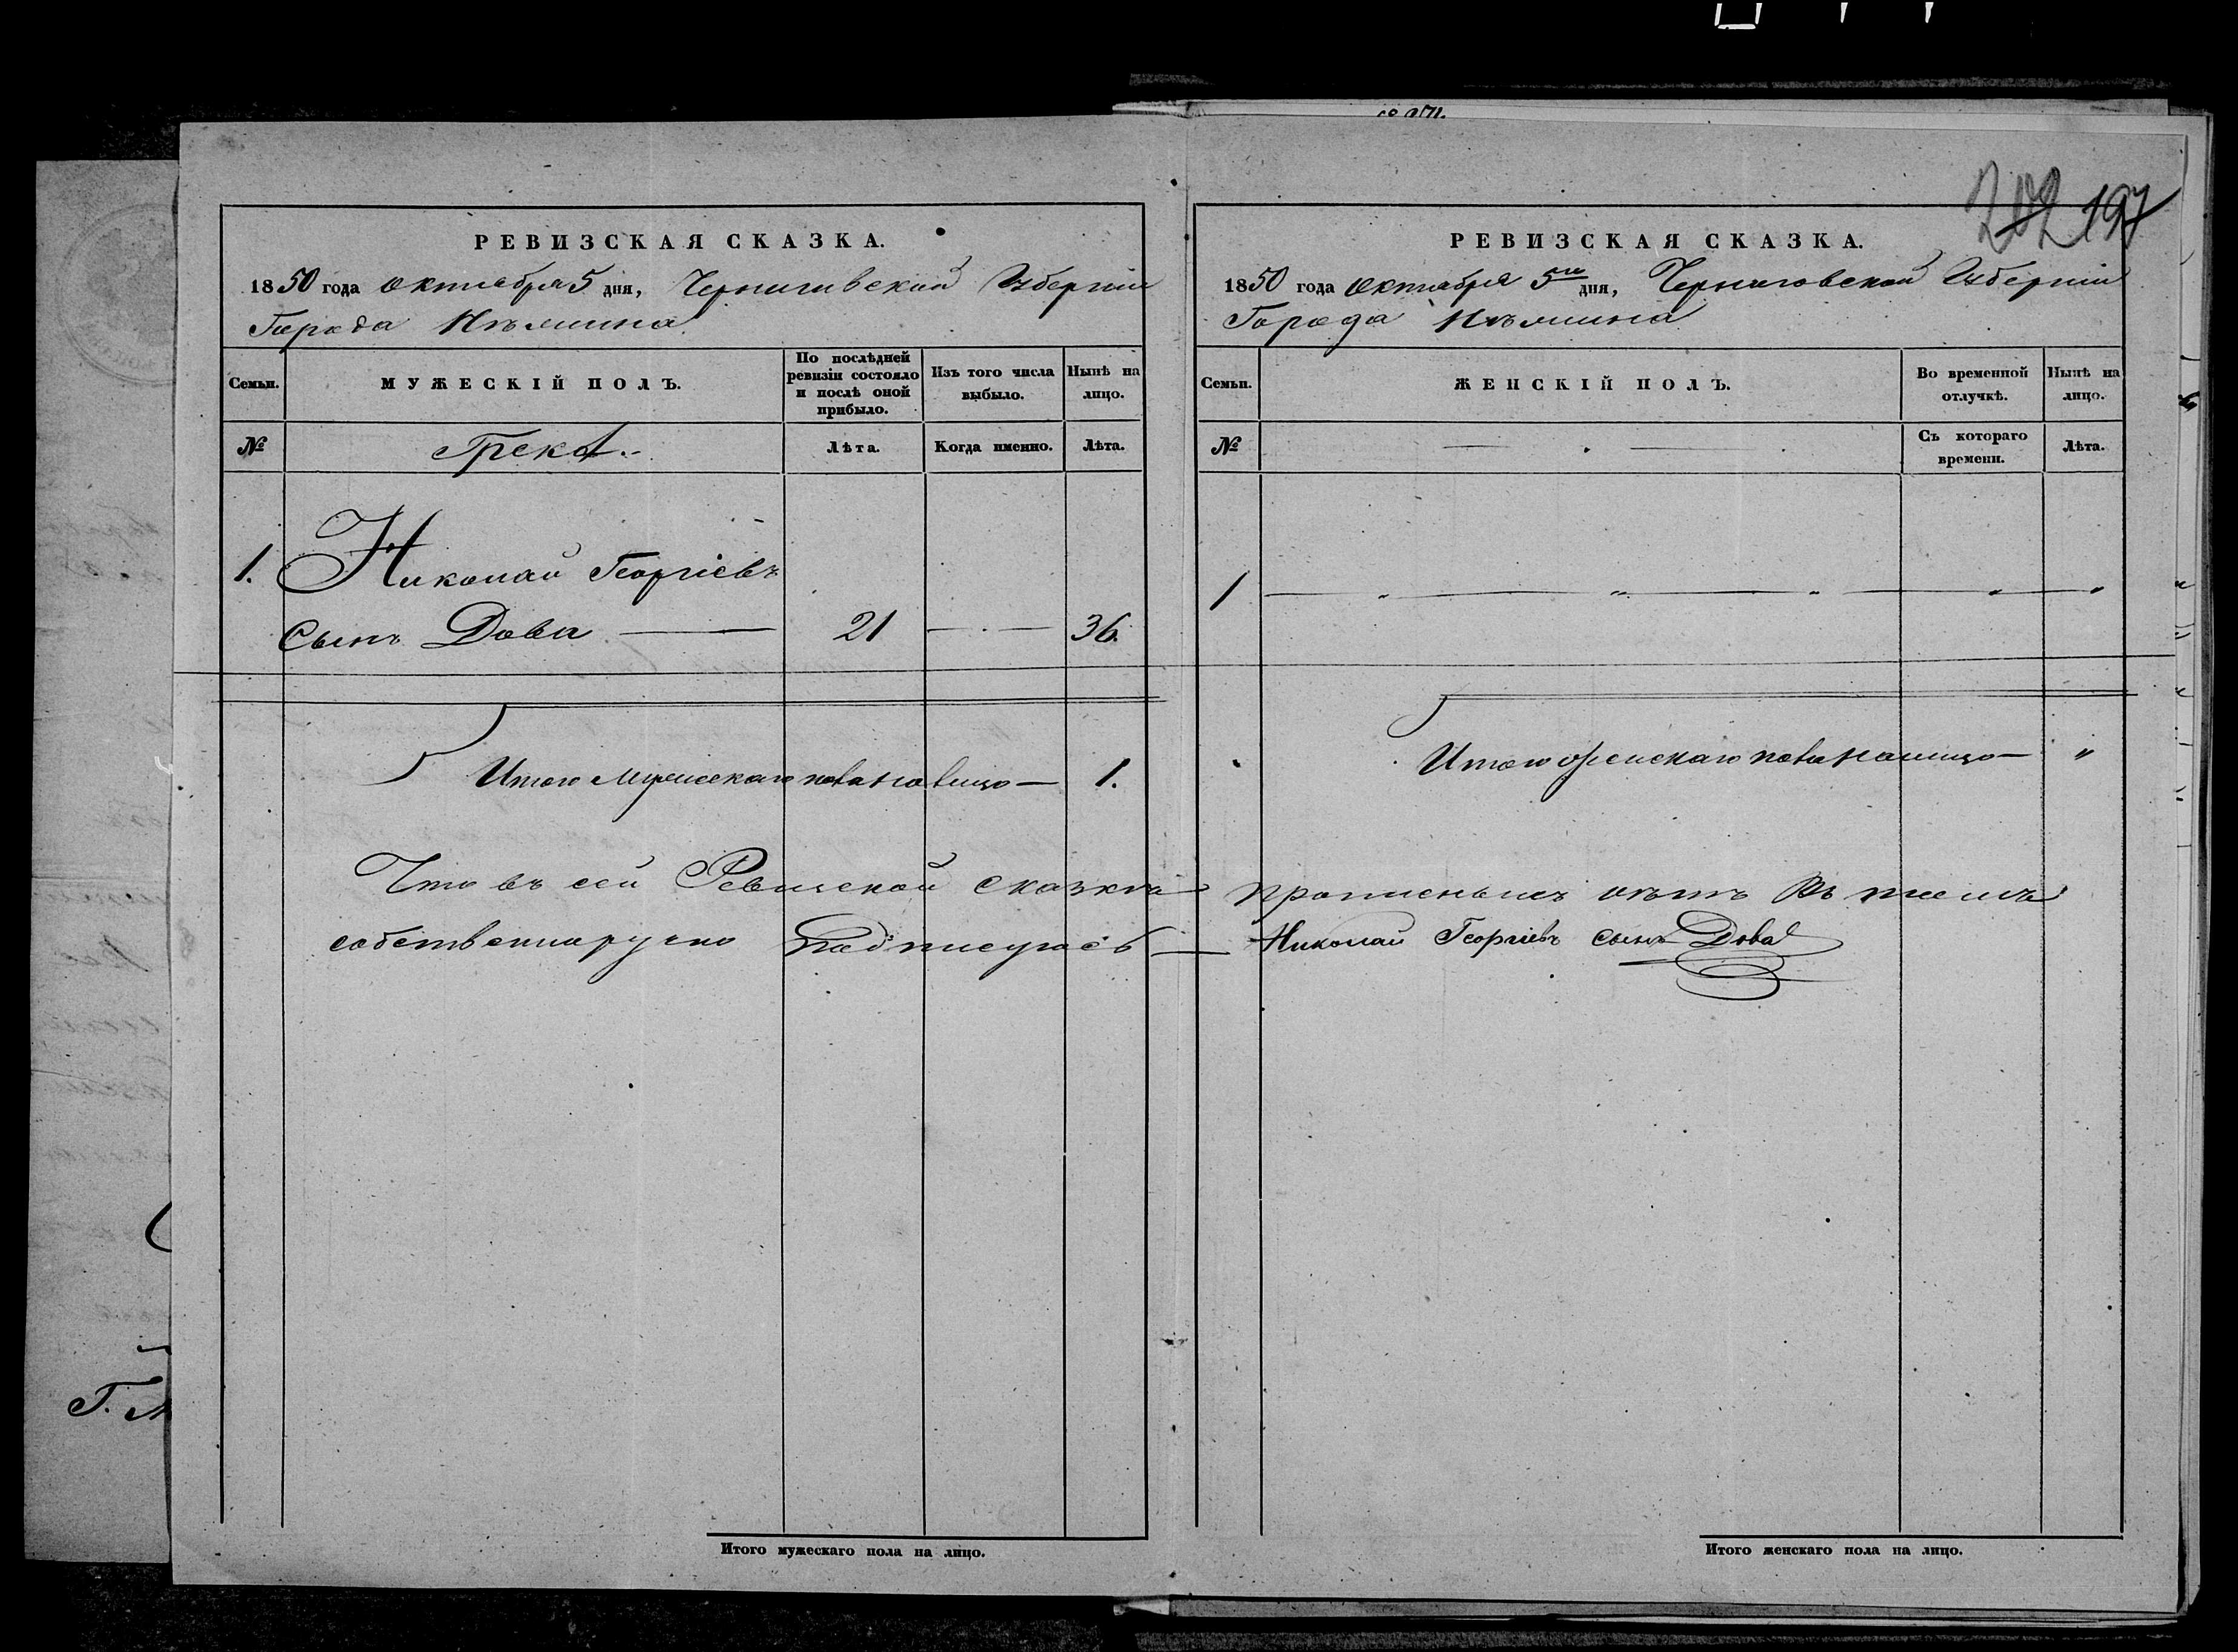 202 197
РЕВИЗСКАЯ СКАЗКА.
1850 года Октября 5 дня, Черниговской Губерніи
Города Нѣжина
Семьи.
МУЖЕСКІЙ ПОЛЪ.
По послѣдней ревизіи состояло и послѣ оной прибыло.
Изъ того числа выбыло.
Нынѣ на лицо.
№
Грекъ
Лѣта.
Когда именно.
Лѣта.
1. Николай Георгіевъ
Сынъ Дова — 21 — 36.
Итого мужескаго пола на лицо — 1.
Что въ сей Ревизской сказкѣ
собственноручно подписуюсь —
Итого мужескаго пола на лицо.
РЕВИЗСКАЯ СКАЗКА.
1850 года Октября 5го дня, Черниговской Губерніи
Города Нѣжина
Семьи.
ЖЕНСКІЙ ПОЛЪ.
Во временной отлучкѣ.
Нынѣ на лицо.
№
Съ котораго времени.
Лѣта.
1 — „ — „ — „ — „ — „
Итого женскаго пола на лицо — „
прописныхъ нѣтъ въ томъ
Николай Георгіевъ сынъ Дова
Итого женскаго пола на лицо.